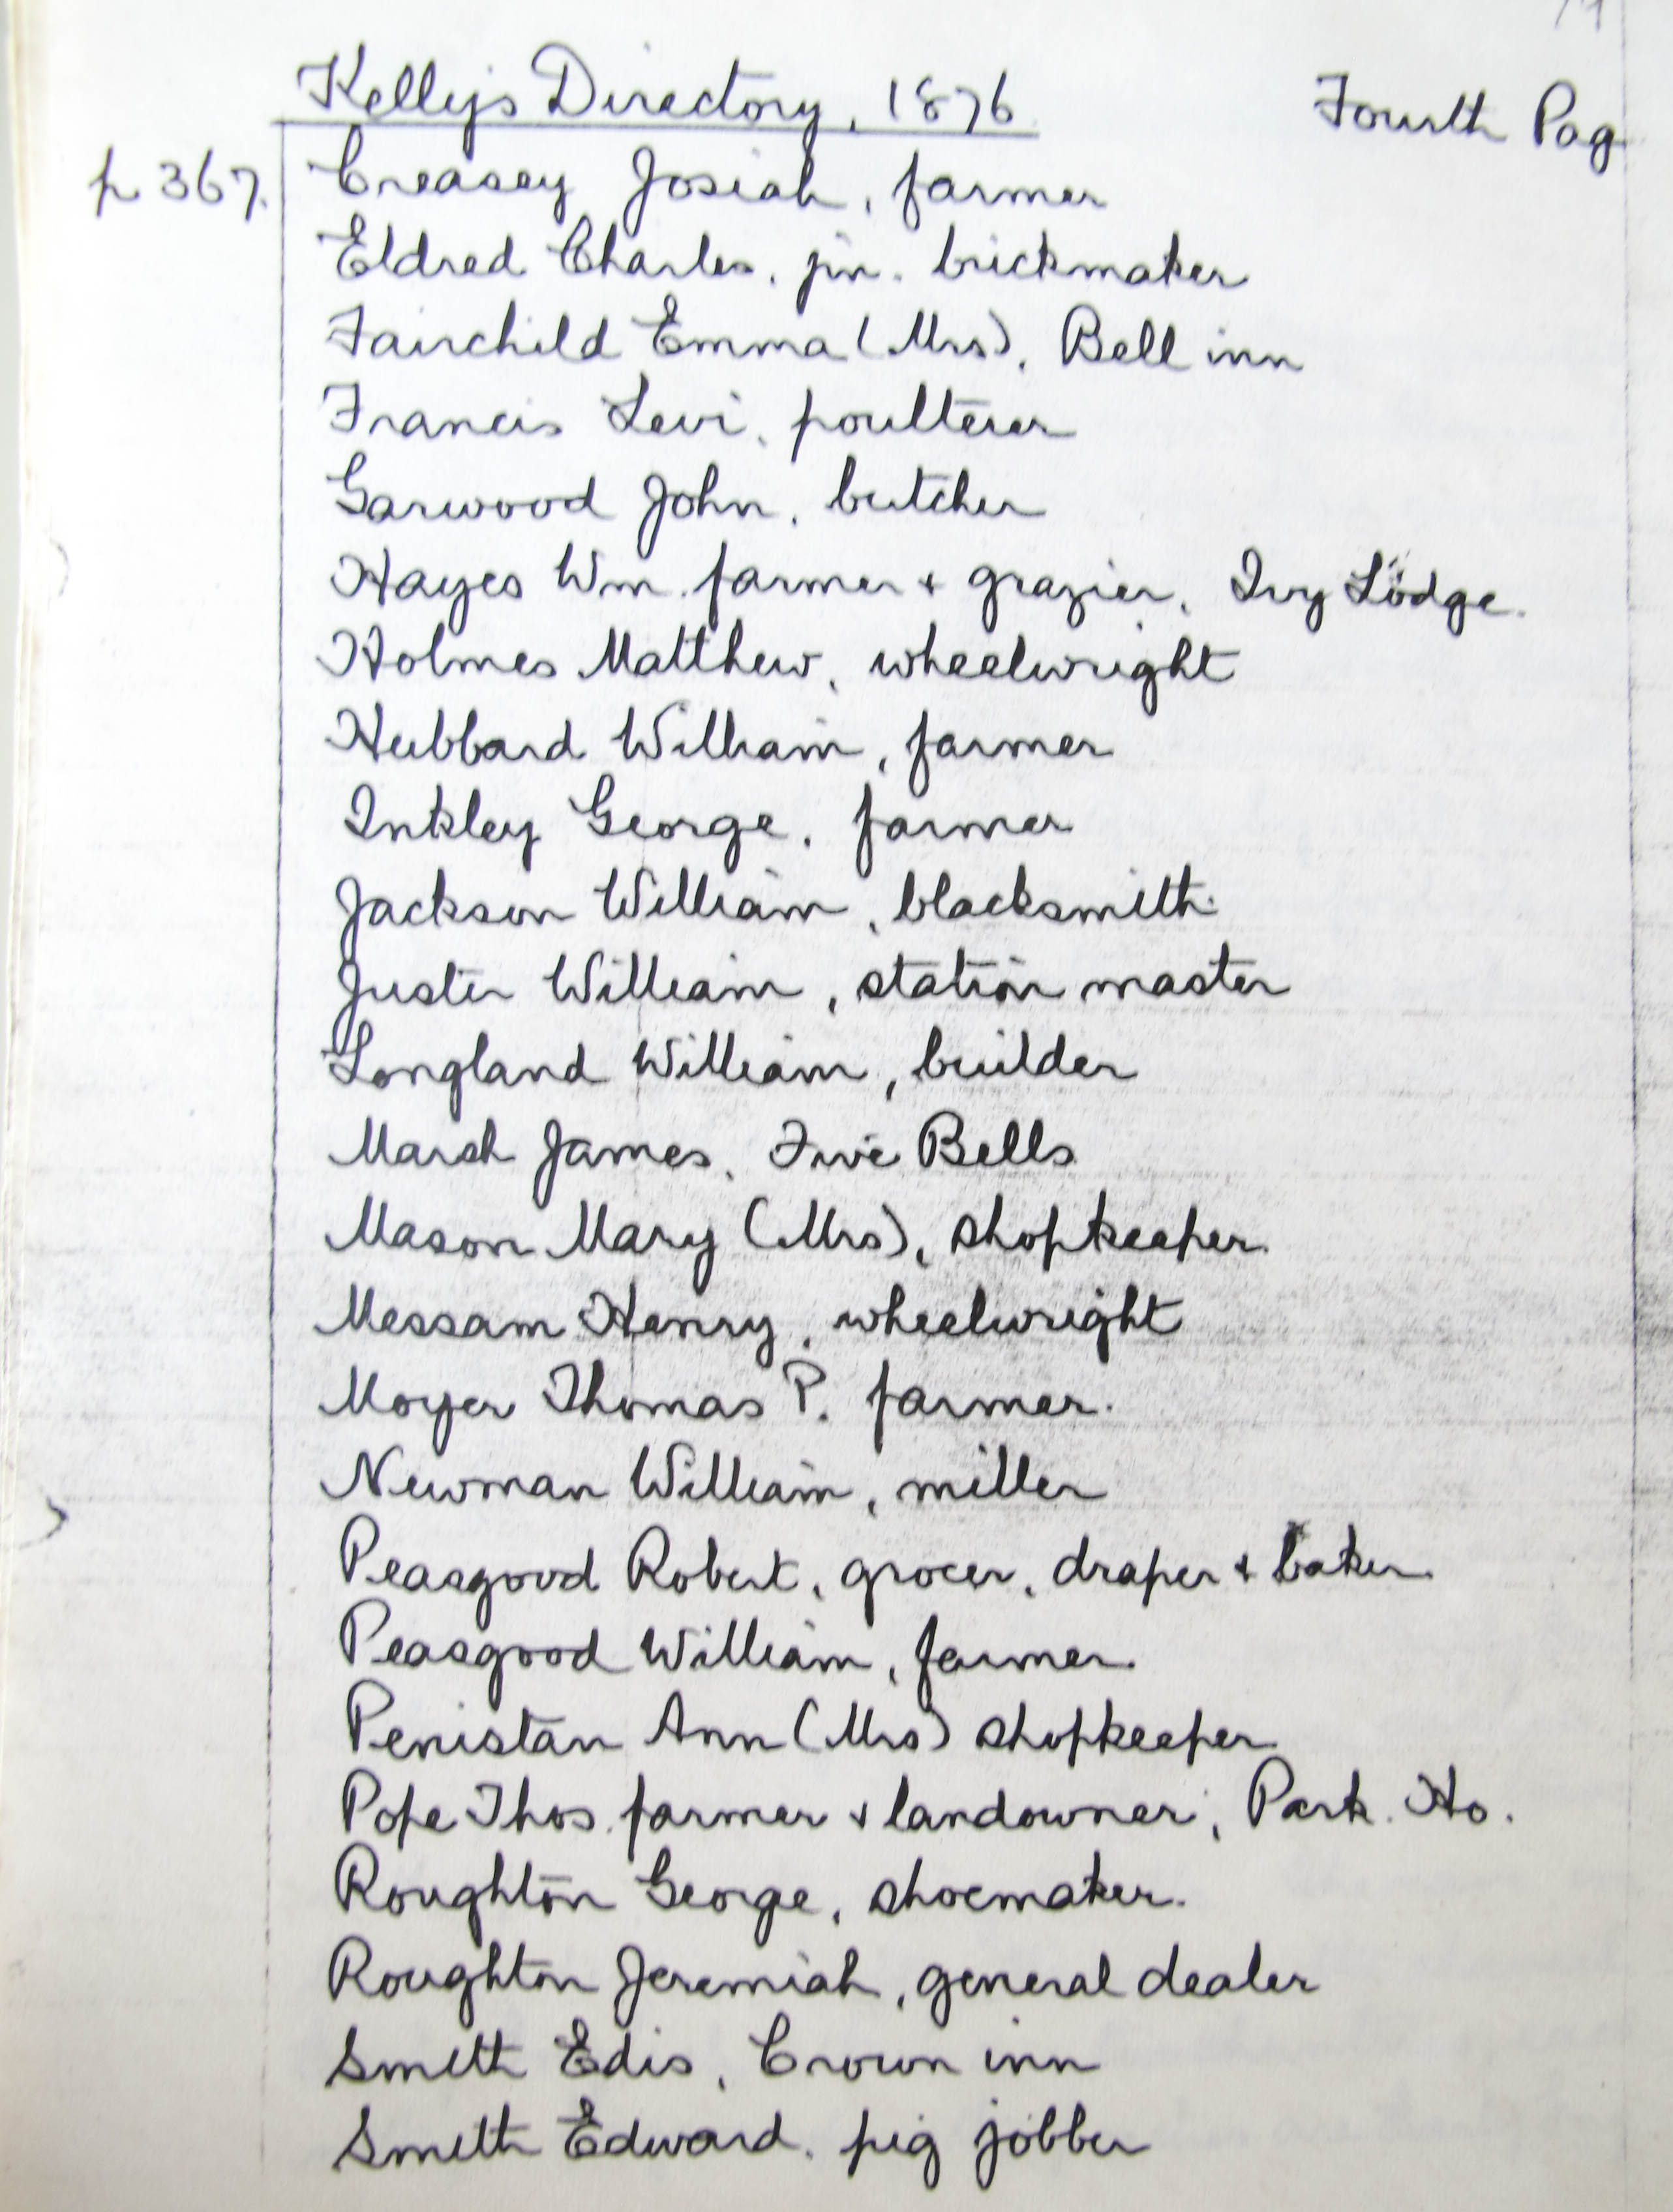 Kellys Directory, 1876
Fourth Pag
p 367.
Creasey Josiah, farmer
Eldred Charles, jun. brickmaker
Fairchild Emma (Mrs), Bell inn
Francis Levi, poulterer
Garwood John, butcher
Hayes Wm. farmer & grazier, Ivy Lodge.
Holmes Matthew, wheelwright
Hubbard William, farmer
Inkley George, farmer
Jackson William, blacksmith
Juster William, station master
Longland William, builder
Marsh James, Five Bells
Mason Mary (Mrs), shopkeeper
Messam Henry, wheelwright
Moyer Thomas P. farmer.
Newman William, miller
Peasgood Robert, grocer, draper & baker
Peasgood William, farmer.
Penistan Ann (Mrs) shopkeeper
Pope Thos. farmer & landowner, Park. Ho.
Roughton George, shoemaker.
Roughton Jeremiah, general dealer
Smith Edis, Crown inn
Smith Edward. pig jobber